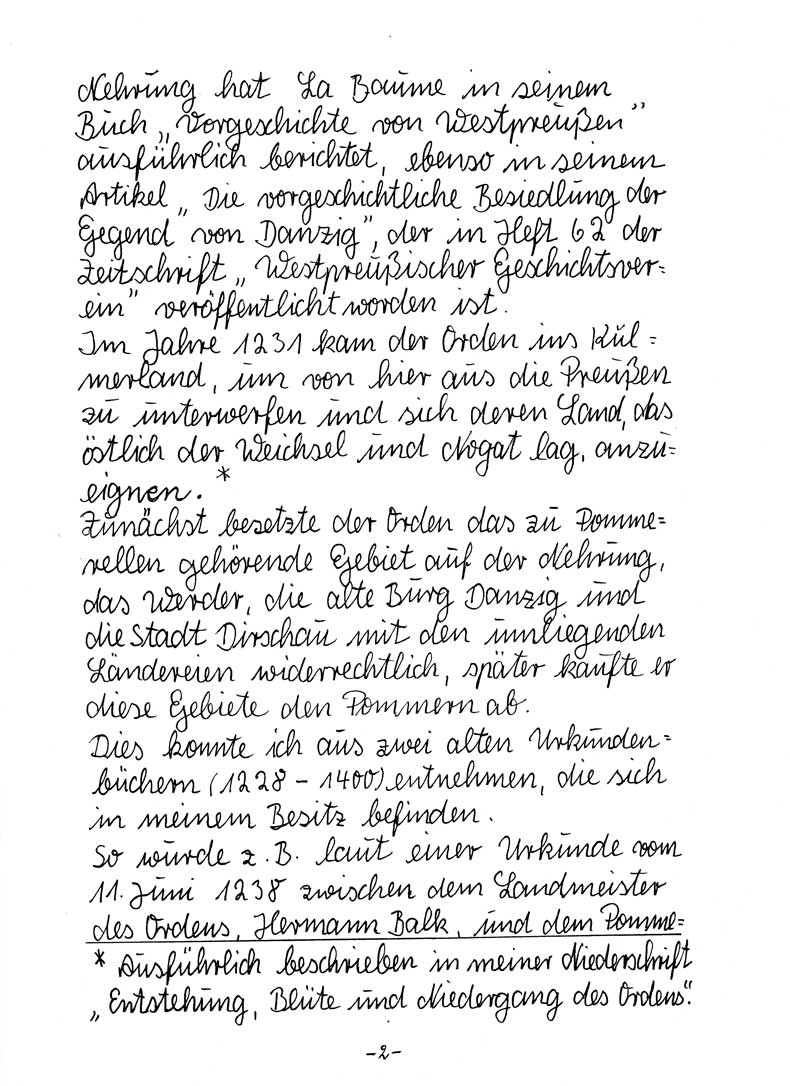 Nehrung hat La Baume in seinem
Buch „Vorgeschichte von Westpreußen"
ausführlich berichtet, ebenso in seinem
Artikel „Die vorgeschichtliche Besiedlung der
Gegend von Danzig", der in Heft 62 der
Zeitschrift „Westpreußischer Geschichtsver=
ein" veröffentlicht worden ist.
Im Jahre 1231 kam der Orden ins Kul=
merland, um von hier aus die Preußen
zu unterwerfen und sich deren Land, das
östlich der Weichsel und Nogat lag, anzu=
eignen. *
Zunächst besetzte der Orden das zu Pomme=
rellen gehörende Gebiet auf der Nehrung,
das Werder, die alte Burg Danzig und
die Stadt Dirschau mit den umliegenden
Ländereien widerrechtlich, später kaufte er
diese Gebiete den Pommern ab.
Dies konnte ich aus zwei alten Urkunden=
büchern (1228 – 1400) entnehmen, die sich
in meinem Besitz befinden.
So wurde z.B. laut einer Urkunde vom
11. Juni 1238 zwischen dem Landmeister
des Ordens, Hermann Balk, und dem Pomme=
* Ausführlich beschrieben in meiner Niederschrift
„Entstehung, Blüte und Niedergang des Ordens".
-2-